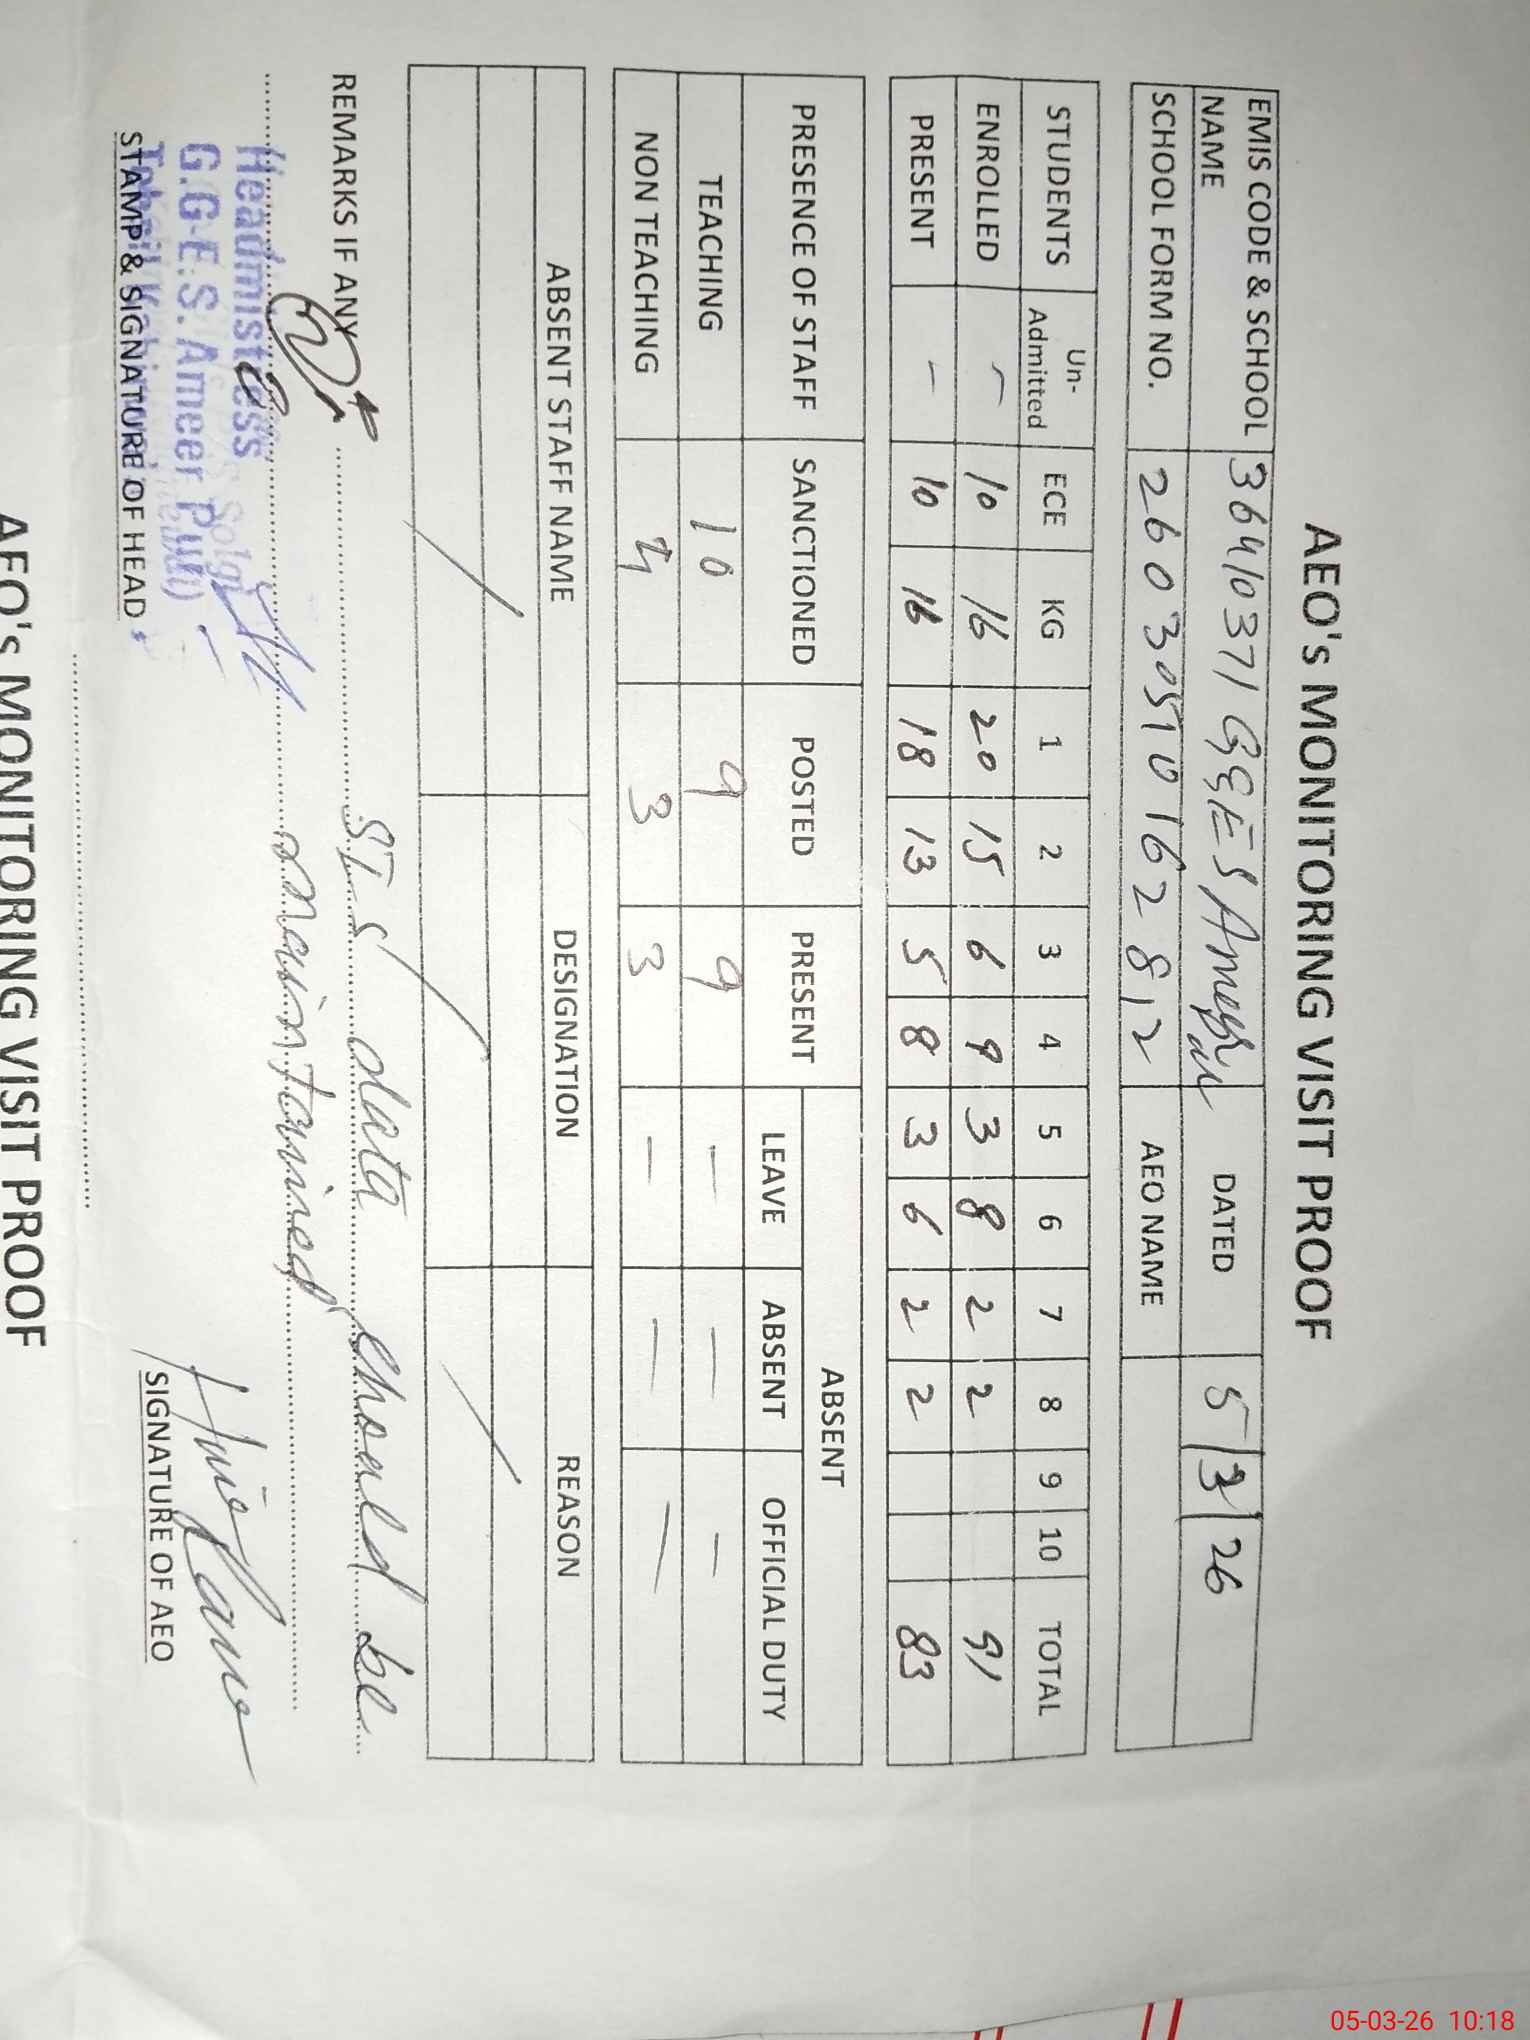 AEO's MONITORING VISIT PROOF
EMIS CODE & SCHOOL NAME 36410371 GGES Ameer DATED 5/3/26
SCHOOL FORM NO. AEO NAME
STUDENTS Un-Admitted ECE KG 1 2 3 4 5 6 7 8 9 10 TOTAL
ENROLLED – 10 16 20 15 6 9 3 8 2 2 91
PRESENT – 10 16 18 13 5 8 3 6 2 2 83
PRESENCE OF STAFF SANCTIONED POSTED PRESENT ABSENT
LEAVE ABSENT OFFICIAL DUTY
TEACHING 10 9 9 – – –
NON TEACHING 3 3 – – –
ABSENT STAFF NAME DESIGNATION REASON
REMARKS IF ANY SIS data should be
maintained
Headmistress
G.G.E.S. Ameer Pur
STAMP & SIGNATURE OF HEAD
SIGNATURE OF AEO
AEO's MONITORING VISIT PROOF
05-03-26 10:18